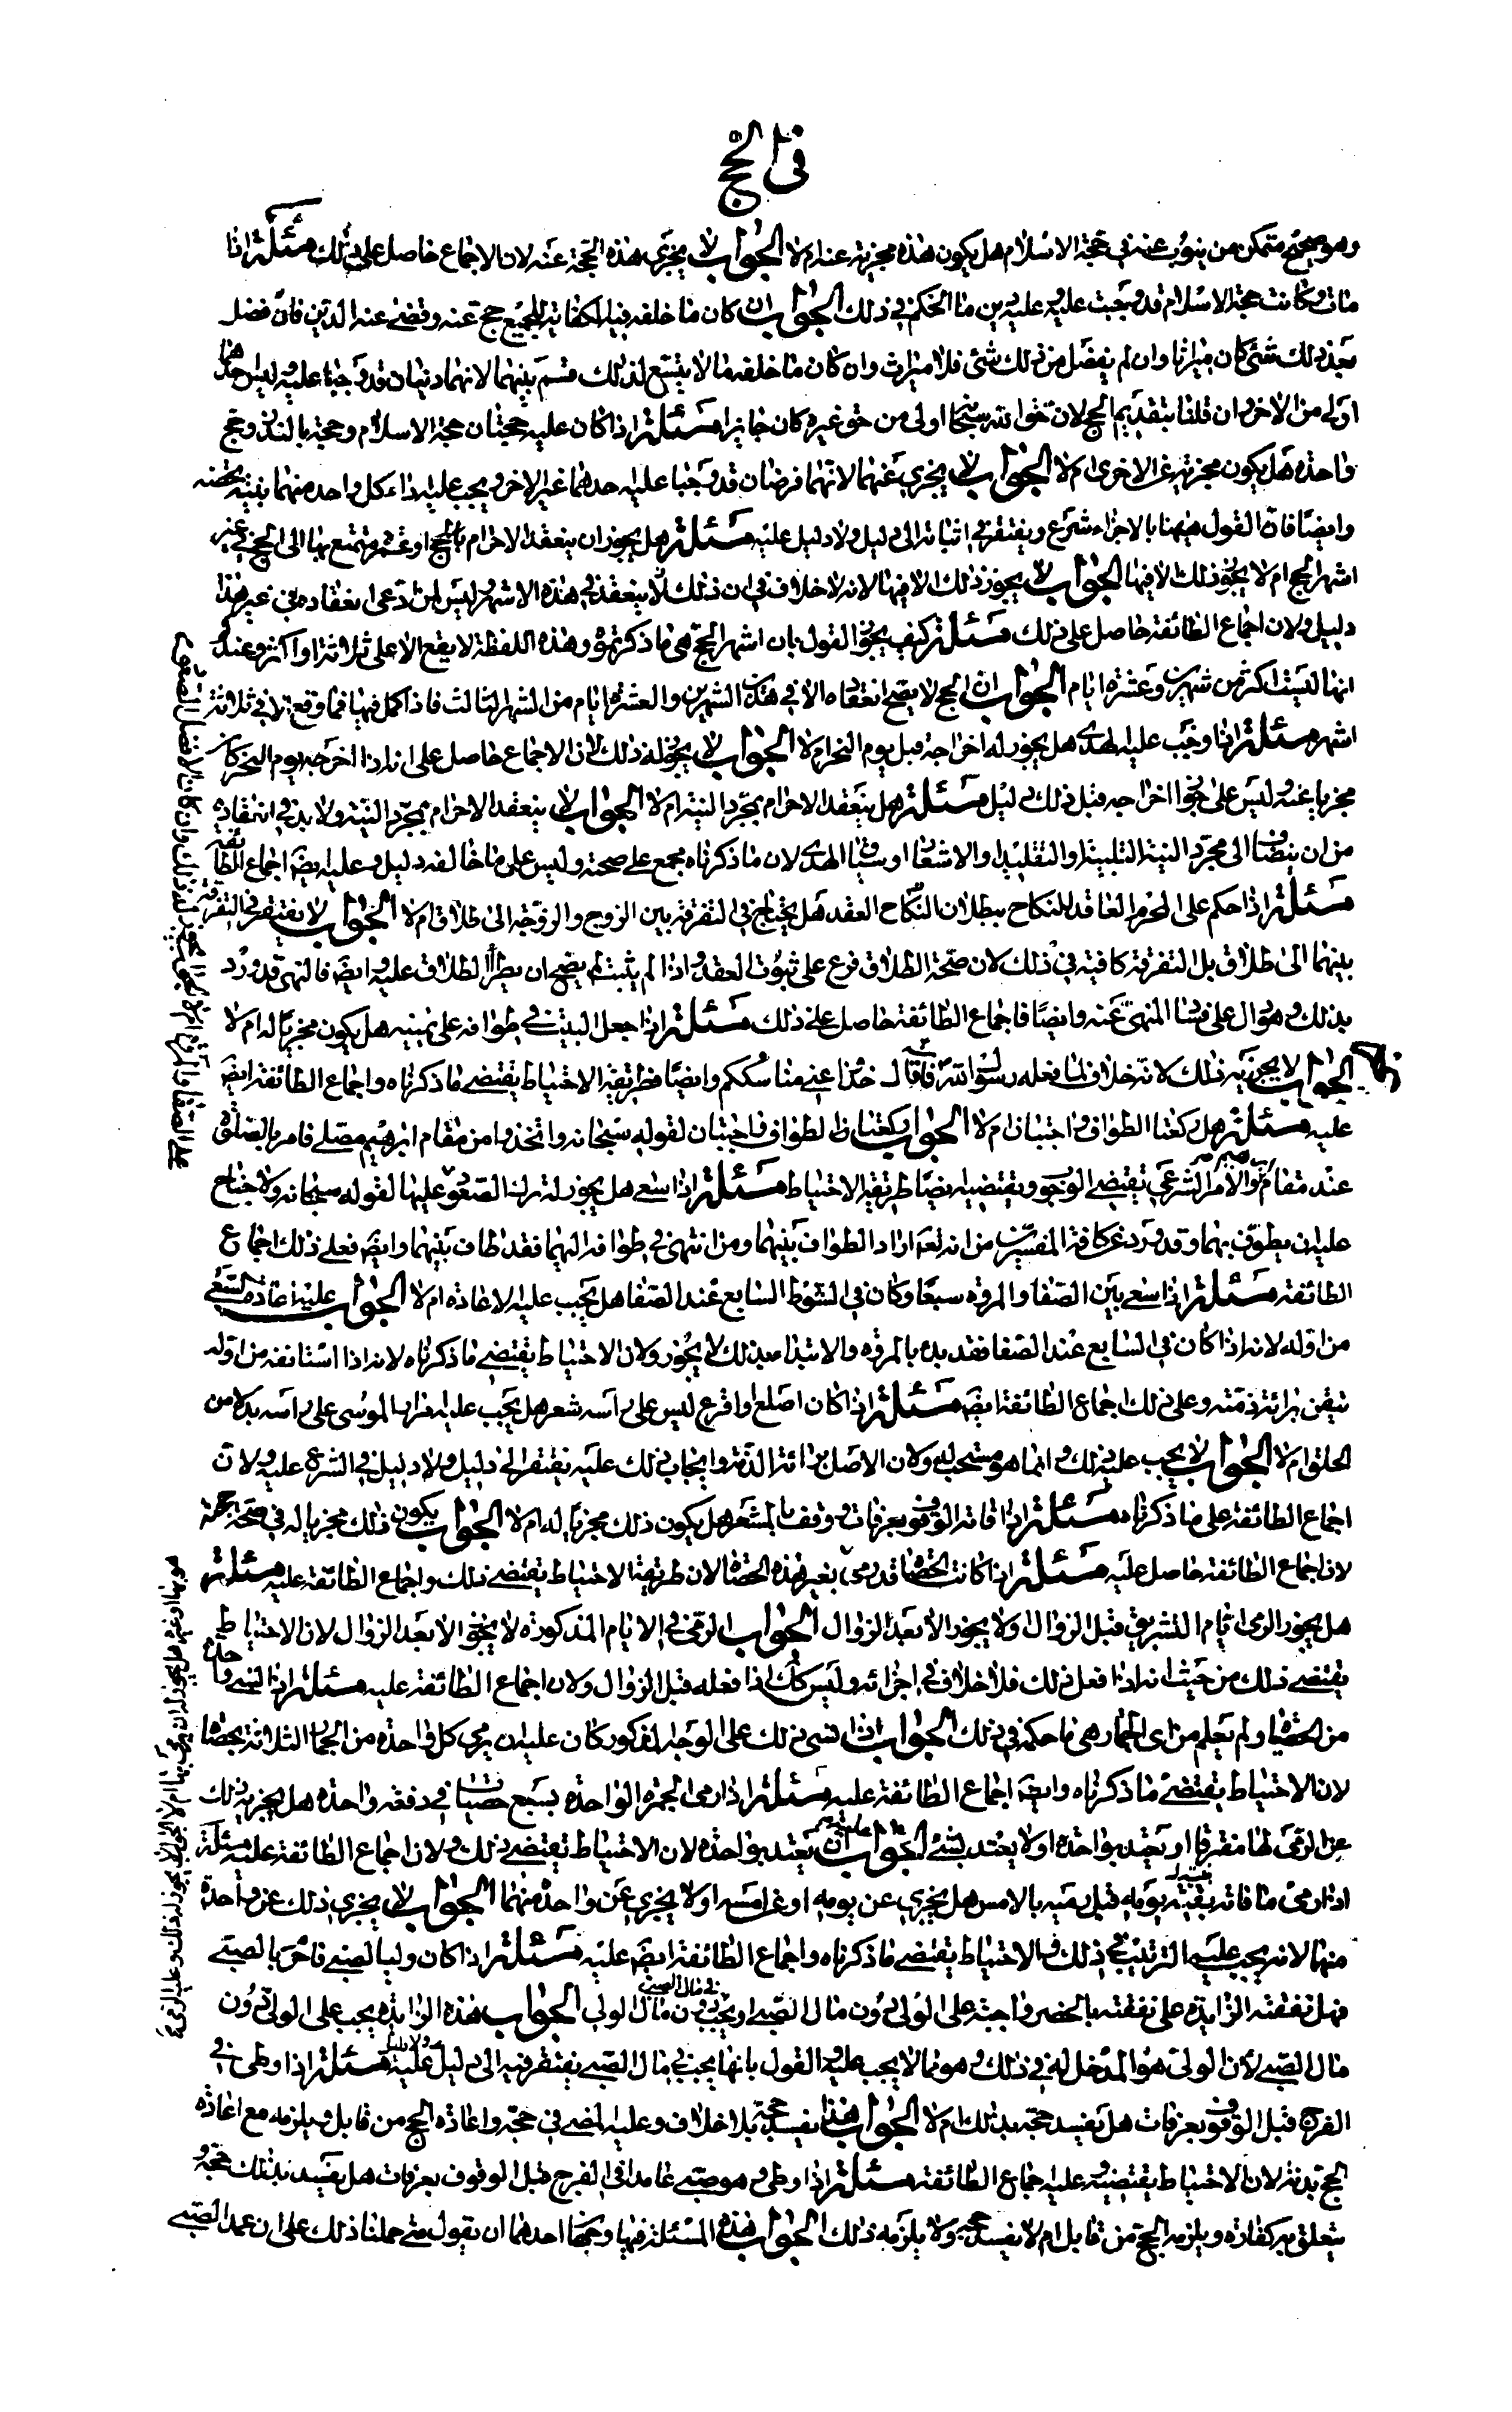 في الحج
وهو صحيح متمكن من ينوب عنه في حجة الاسلام هل يكون هذه مجزية عنه ام لا الجواب لا يجزي هذه الحجة عنه لان الاجماع حاصل على ذلك مسئلة اذا
مات وكانت حجة الاسلام قد وجبت عليه وعليه دين ما الحكم في ذلك الجواب ان كان ما خلفه فيه كفاية للجميع حج عنه وقضى عنه الدين فان فضل
بعد ذلك شئ كان ميراثا وان لم يفضل من ذلك شئ فلا ميراث وان كان ما خلفه ما لا يتسع لذلك قسم بينهما لانهما دينان قد وجبا عليه وليس احدهما
اولى من الاخر وان قلنا بتقديم الحج لان حق الله سبحانه اولى من حق غيره كان جايزا مسئلة اذا كان عليه حجتان حجة الاسلام وحجة بالنذر وحج
واحدة هل يكون مجزية عن الاخرى ام لا الجواب لا يجزي عنهما لانهما فرضان قد وجبا عليه احدهما غير الاخر ويجب عليه اداء كل واحد منهما بنية تخصه
وايضا فان القول هيهنا بالاجزاء شرع ويفتقر في اثباته الى دليل ولا دليل عليه مسئلة هل يجوز ان ينعقد الاحرام بالحج او عمرة متمتع بها الى الحج في غير
اشهر الحج ام لا يجوز ذلك الا فيها الجواب لا يجوز ذلك الا فيها لانه لا خلاف في ان ذلك ينعقد في هذه الاشهر وليس لمن ادعى انعقاده في غير هذا
دليل ولان اجماع الطائفة حاصل على ذلك مسئلة كيف يجوز القول بان اشهر الحج هي ما ذكرتموه وهذه اللفظة لا يقع الا على ثلاثة او اكثر وعندكم
انها ليست اكثر من شهرين وعشرة ايام الجواب ان الحج لا يصح انعقاده الا في هذين الشهرين والعشرة ايام من الشهر الثالث فاذا كمل فيها فما وقع الا في ثلاثة
اشهر مسئلة اذا وجب عليه الهدى هل يجوز له اخراجه قبل يوم النحر ام لا الجواب لا يجوز له ذلك لان الاجماع حاصل على انه اذا اخرجه يوم النحر كان
مجزيا عنه وليس على جواز اخراجه قبل ذلك دليل مسئلة هل ينعقد الاحرام بمجرد النية ام لا الجواب لا ينعقد الاحرام بمجرد النية ولا بد في انعقاده
من ان ينضاف الى مجرد النية التلبية او التقليد او الاشعار او سياق الهدى لان ما ذكرناه مجمع على صحته وليس على ما خالفه دليل وعليه ايضا اجماع الطائفة
مسئلة اذا حكم على المحرم العاقد للنكاح ببطلان النكاح العقد هل يحتاج في التفرقة بين الزوج والزوجة الى طلاق ام لا الجواب لا يفتقر في التفرقة
بينهما الى طلاق بل التفرقة كافية في ذلك لان صحة الطلاق فرع على ثبوت العقد واذا لم يثبت لم يصح ان يطرأ الطلاق عليه وايضا فالنهى قد ورد
بذلك وهو دال على فساد المنهى عنه وايضا فاجماع الطائفة حاصل على ذلك مسئلة اذا جعل البيت في طوافه على يمينه هل يكون مجزيا له ام لا
الجواب لا يجزيه ذلك لانه خلاف لما فعله رسول الله وقال خذوا عني مناسككم وايضا فطريقة الاحتياط يقتضي ما ذكرناه واجماع الطائفة ايضا
عليه مسئلة هل ركعتا الطواف واجبتان ام لا الجواب ركعتا الطواف واجبتان لقوله سبحانه واتخذوا من مقام ابرهيم مصلى فامر بالصلوة
عند مقام والامر الشرعي يقتضي الوجوب ويقتضيه ايضا طريقة الاحتياط مسئلة اذا سعى هل يجوز له ترك الصعود عليها لقوله سبحانه ولا جناح
عليه ان يطوف بهما وقد ورد عن كافة المفسرين من انه تعالى اراد الطواف بينهما ومن انتهى في طوافه اليهما فقد طاف بينهما وايضا فعلى ذلك اجماع
الطائفة مسئلة اذا سعى بين الصفا والمروة سبعا وكان في الشوط السابع عند الصفا هل يجب عليه الاعادة ام لا الجواب عليه اعادة السعى
من اوله لانه اذا كان في السابع عند الصفا فقد بدء بالمروة والابتداء بذلك لا يجوز ولان الاحتياط يقتضي ما ذكرناه لانه اذا استانفه من اوله
تيقن برائة ذمته وعلى ذلك اجماع الطائفة ايضا مسئلة اذا كان اصلع او اقرع ليس على راسه شعر هل يجب عليه امرار الموسى على راسه بدلا من
الحلق ام لا الجواب لا يجب عليه ذلك وانما هو مستحب له ولان الاصل برائة الذمة وايجاب ذلك عليه يفتقر الى دليل ولا دليل في الشرع عليه ولان
اجماع الطائفة على ما ذكرناه مسئلة اذا فاته الوقوف بعرفات ووقف بالمشعر هل يكون ذلك مجزيا له ام لا الجواب يكون ذلك مجزيا له في صحة حجه
لان اجماع الطائفة حاصل عليه مسئلة اذا كانت الحصا قد رمى بغير هذه الحصا لان طريقة الاحتياط يقتضي ذلك واجماع الطائفة عليه مسئلة
هل يجوز الرمى ايام التشريق قبل الزوال او لا يجوز الا بعد الزوال الجواب الرمى في الايام المذكورة لا يجوز الا بعد الزوال لان الاحتياط
يقتضي ذلك من حيث انه اذا فعل ذلك فلا خلاف في اجزائه وليس كذلك اذا فعله قبل الزوال ولان اجماع الطائفة عليه مسئلة اذا نسى واحدة
من الحصا ولم يعلم من اى الجمار هى ما حكمه في ذلك الجواب اذا نسى ذلك على الوجه المذكور كان عليه ان يرمي كل واحدة من الجمار الثلاثة بحصاة
لان الاحتياط يقتضي ما ذكرناه وايضا اجماع الطائفة عليه مسئلة اذا رمى الجمرة الواحدة بسبع حصيات في دفعة واحدة هل يجزيه ذلك
عن الرمى لها متفرقا او يعتد بواحدة او لا يعتد بشئ الجواب يعتد بواحدة لان الاحتياط يقتضي ذلك ولان اجماع الطائفة عليه مسئلة
اذا رمى ما فاته بقية يومه قبل رميه بالامس هل يجزي عن يومه او عن امسه او لا يجزي عن واحد منهما الجواب لا يجزي ذلك عن واحدة
منهما لانه يجب عليه الترتيب في ذلك والاحتياط يقتضي ما ذكرناه واجماع الطائفة ايضا عليه مسئلة اذا كان وليا لصبي فاحرم بالصبى
فهل نفقته الزايدة على نفقته بالحضر واجبة على الولى دون مال الصبى او يجب في مال الصبى دون مال الولى الجواب هذه الزايدة يجب على الولى دون
مال الصبى لان الولى هو المدخل له في ذلك وهو مما لا يجب عليه والقول بانها يجب في مال الصبى يفتقر فيه الى دليل ولا دليل عليه مسئلة اذا وطى في
الفرج قبل الوقوف بعرفات هل يفسد حجه بذلك ام لا الجواب هذا يفسد حجه بلا خلاف وعليه المضى في حجه واعادة الحج من قابل ويلزمه مع اعادة
الحج بدنة لان الاحتياط يقتضيه وعليه اجماع الطائفة مسئلة اذا وطى وهو صبى عامدا في الفرج قبل الوقوف بعرفات هل يفسد بذلك حجه و
يتعلق به كفارة ويلزمه الحج من قابل ام لا يفسد حجه ولا يلزمه ذلك الجواب هذه المسئلة فيها وجهان احدهما ان يقول متى حملنا ذلك على ان عمد الصبى